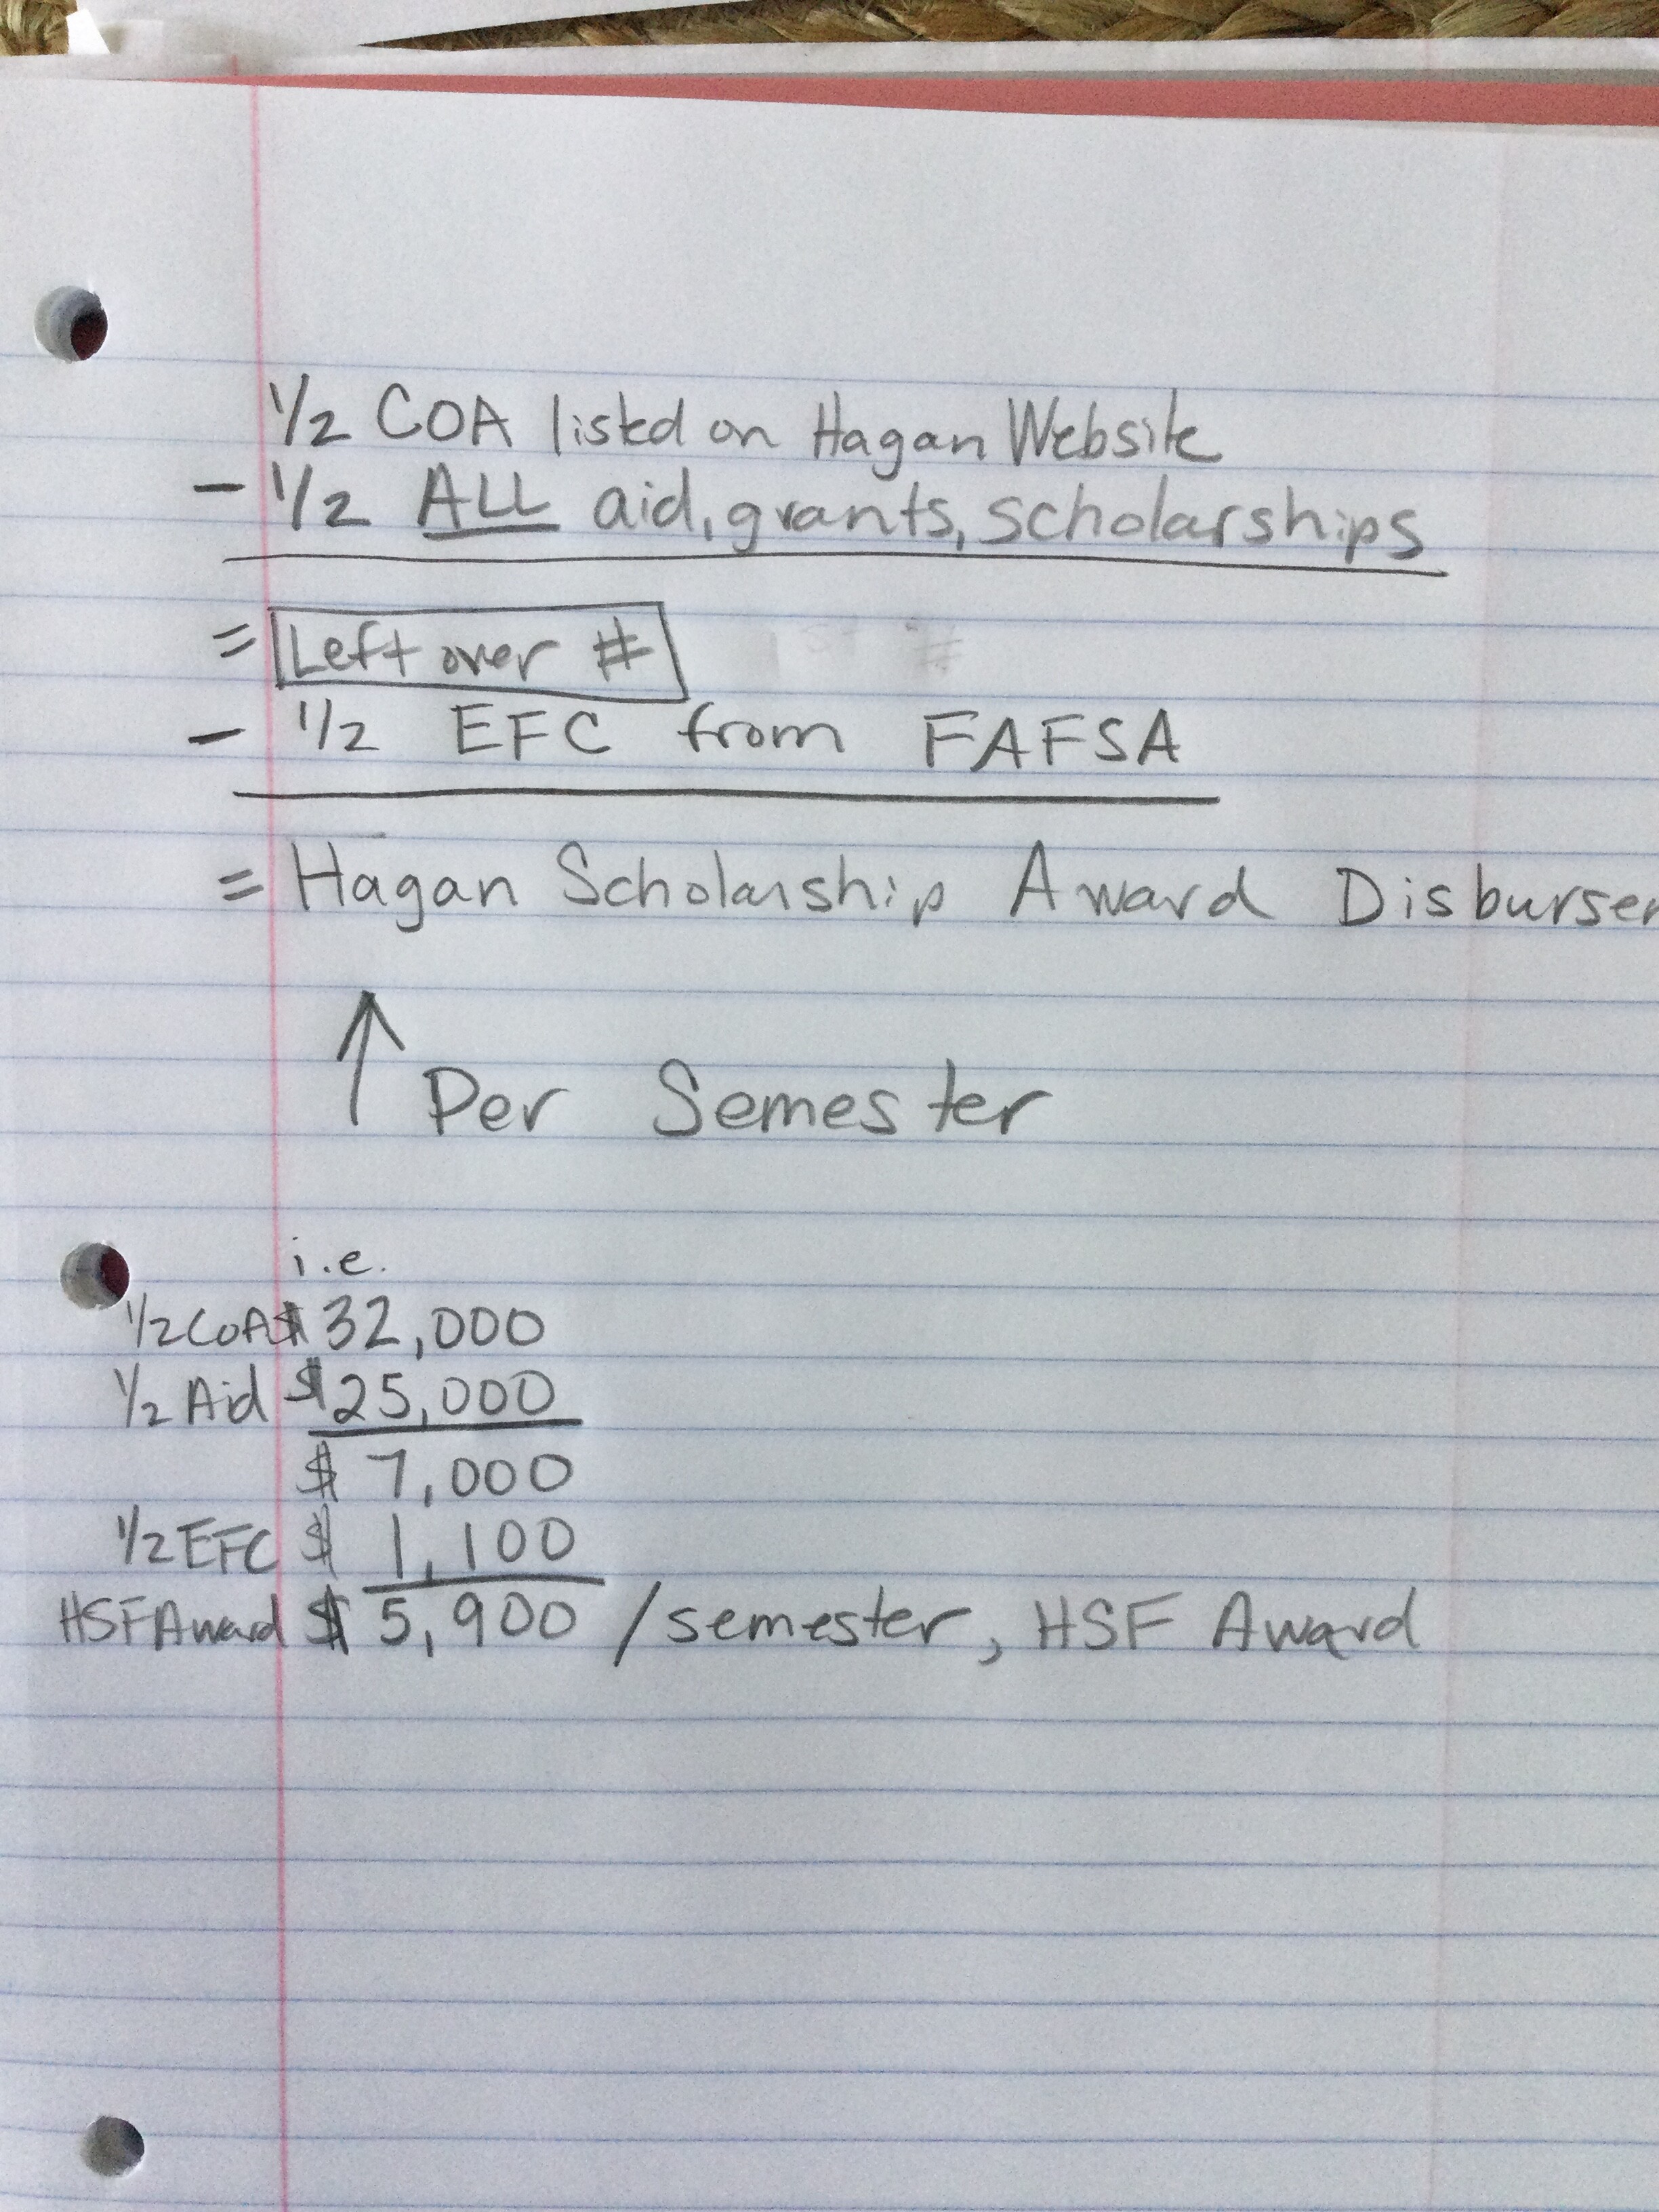 1/2 COA listed on Hagan Website
- 1/2 ALL aid, grants, scholarships
= Left over #
- 1/2 EFC from FAFSA
= Hagan Scholarship Award Disburse
↑ Per Semester
i.e.
1/2 COA $ 32,000
1/2 Aid $ 25,000
$ 7,000
1/2 EFC $ 1,100
HSF Award $ 5,900 / semester, HSF Award